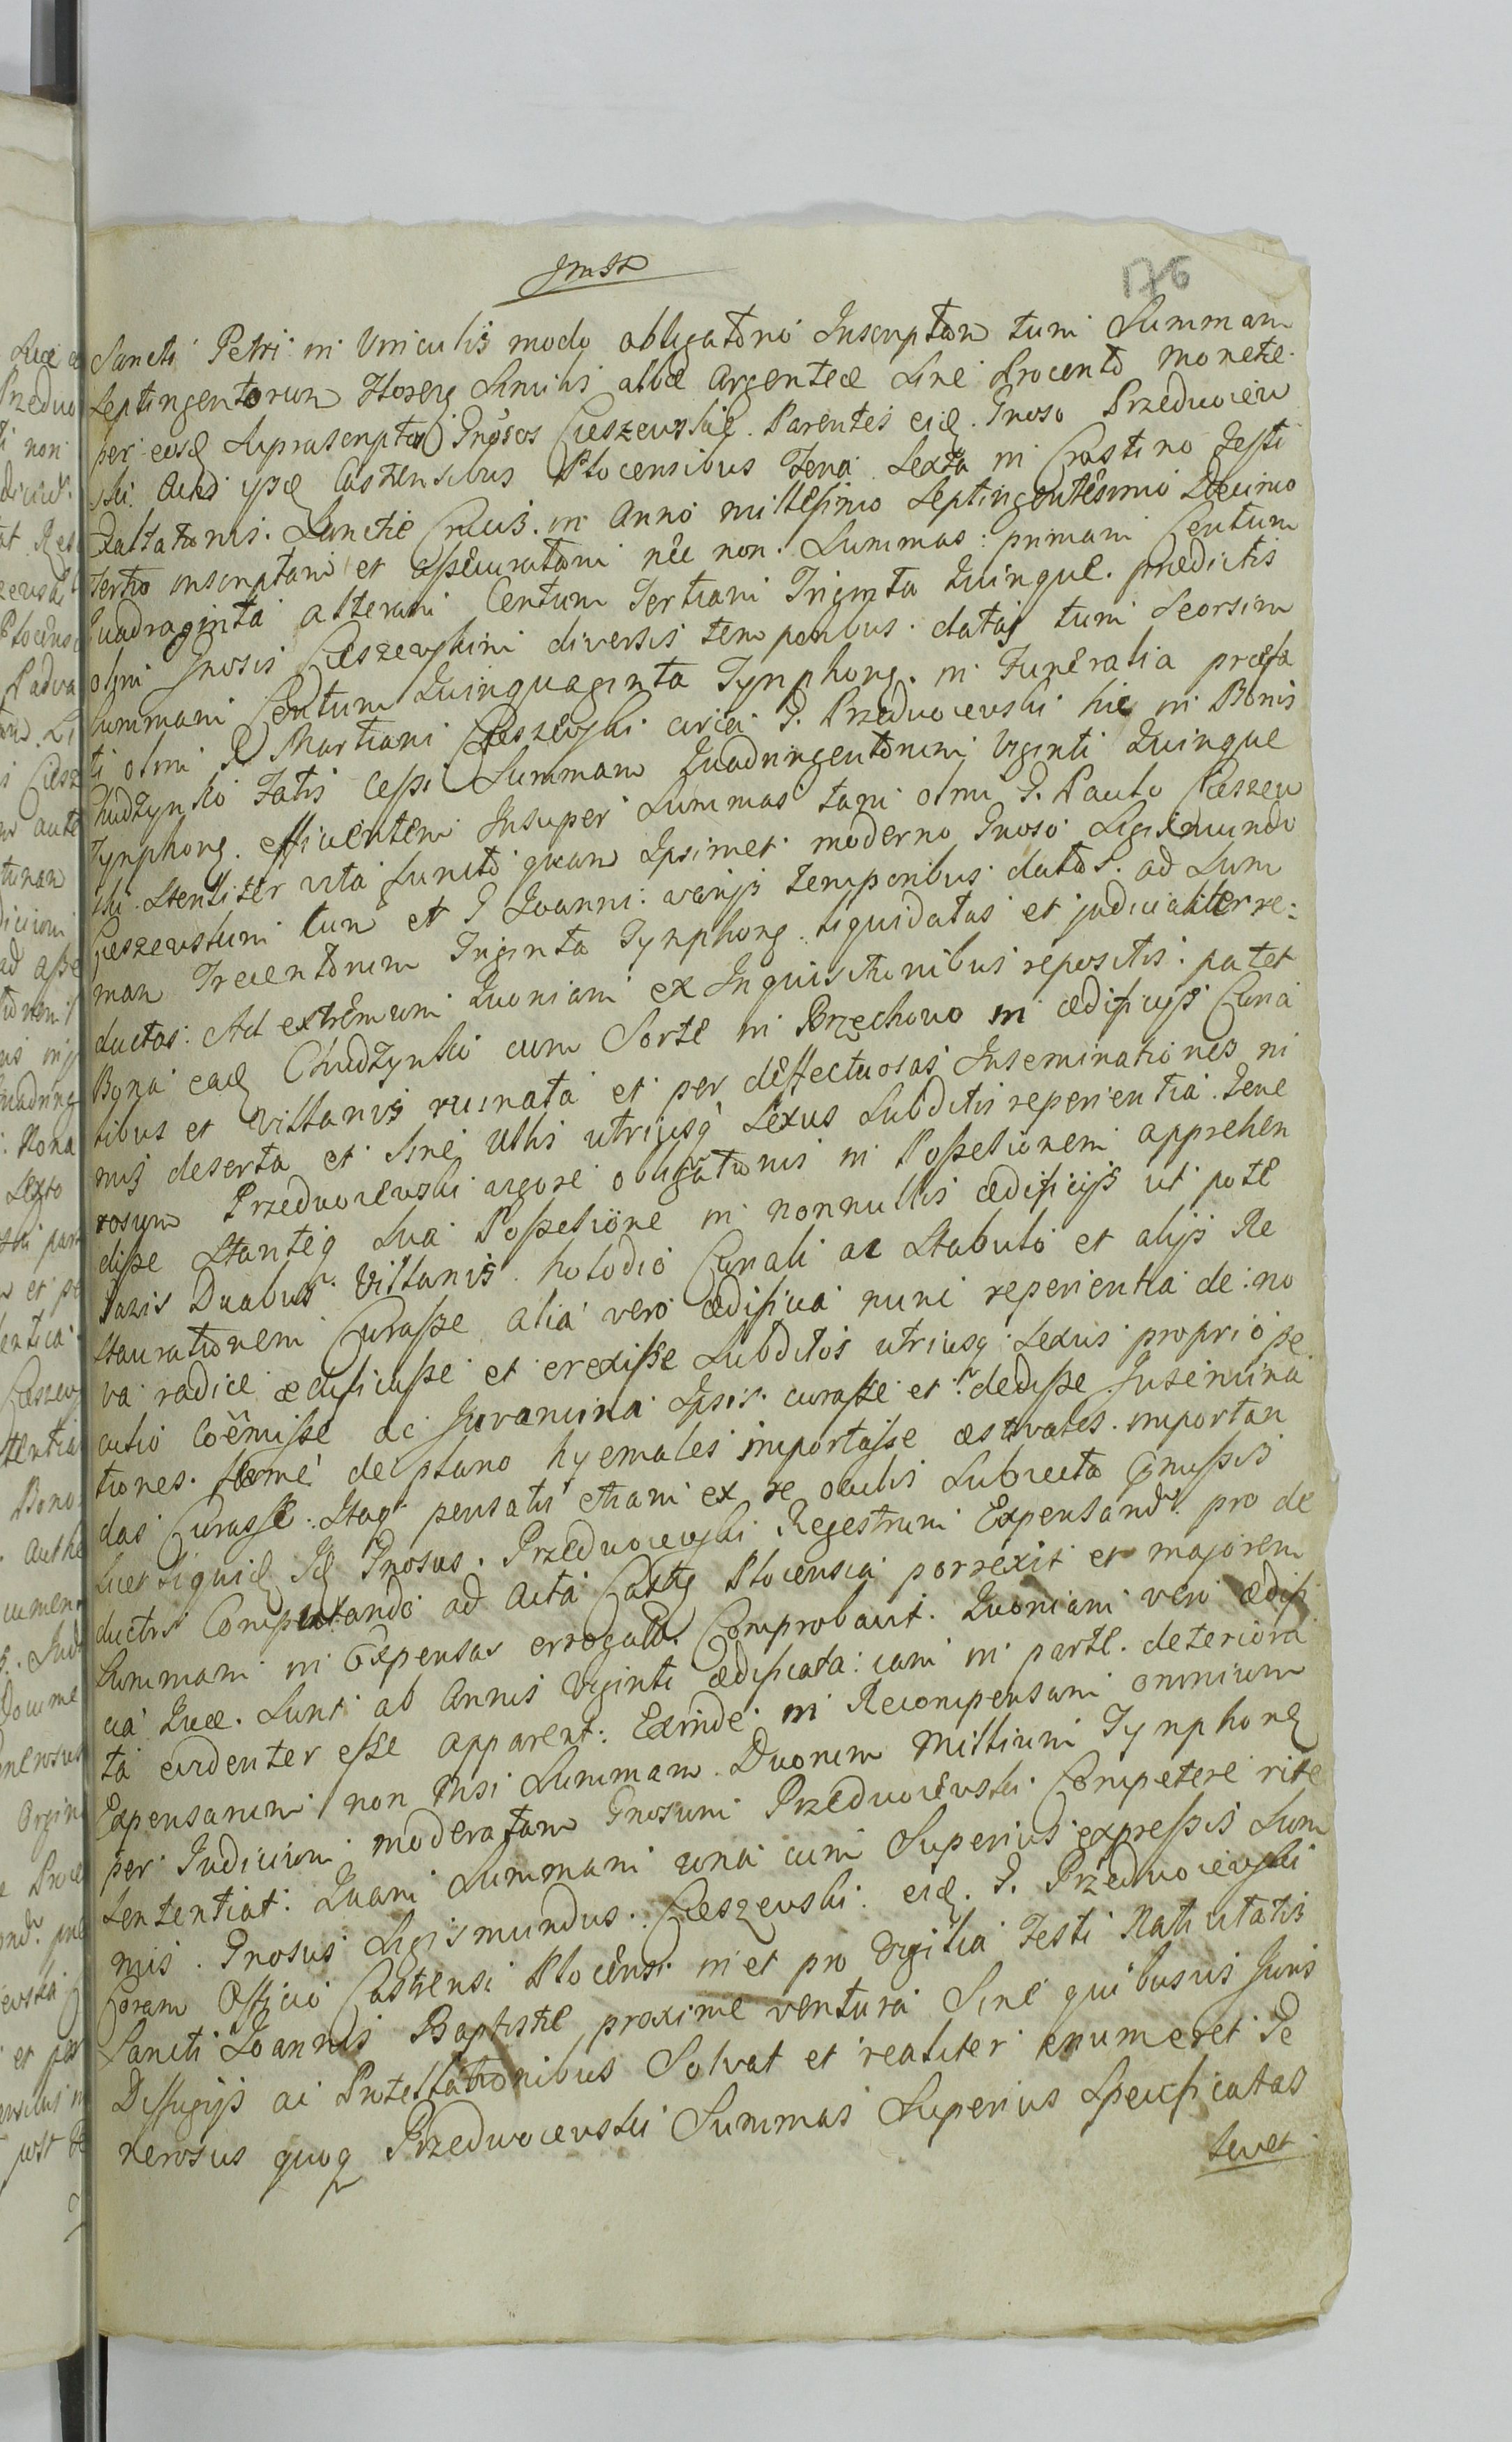 176
Sancti Petri in Vinculis modo obligatorio Inscriptam tum Summam
Septingentorum Floreg Similis albæ Argenteæ Sine Procento monetæ
per eosd Suprascriptos Gnosos Cieszewskie Parentes eid. Gnoso Przedwoiew
ski Actis ipse Castrensibus Plocensibus Feria Sexta in Crastino Festi
Exaltationis Sanctæ Crucis in Anno millesimo Septingentesimo Decimo
Tertio inscriptam et assecuratam nec non Summas: primam Centum
Quadraginta alteram Centum Tertiam Triginta Quinque prædictis
olim Gnosis Cieszewskim diversis temporibus datas tum Seorsim
Summam Centum Quinquaginta Tynphong. in Funeralia præfa
ti olim G Martiani Cieszewski circa G. Przedwoiewski hic in Bonis
Chudzynko Fatis Cessi Summam Quadringentorum Viginti Quinque
Tynphong. efficientem Insuper Summas tam olim G. Paulo Cieszew
ski Steriliter vita functo quam Ipsimet moderno Gnoso Sigismundo
Cieszewskum tum et G Joanni varijs temporibus datas ad Sum
mam Trecentorum Triginta Tynphong. liquidatas et judicialiter re:
ductas: Ad extremum Quoniam ex Inquisitionibus repositis patet
Bona ead Chudzynko cum Sorte in Brzechowo in ædificijs Cuna
libus et Villanis ruinata et per deffectuosas Inseminationes ni
mis deserta et Sine Ullis utriusq Sexus Subditis reperientia Gene
rosum Przedwoiewski vigore obligationis in Possesionem apprehen
disse Stanteq Sua Possesione in nonnullis ædificijs ut pote
Duabus Villanis holodio Canali ac Stabulo et alijs Re
staurationem Curasse, alia vero ædificia nunc reperientia de no
va radice ædificasse et erexisse Subditos utriusq Sexus proprio pe
culio Coëmisse ac Juvamina Ipsis curasse et dedisse Insemina
tiones de plano hyemales importasse æstivales importan
das Curasse: Itaq pensatis etiam ex re oculis Subiecta
licet liquid Id Gnosus Przedwoiewski Regestrum Expensand. pro de
ductis Computando ad Acta Castg Plocensia porrexit et majorem
Summam in Expensas errogatâ Comprobavit. Quoniam vero ædifi
cia Quæ Sunt ab Annis Viginti ædificata: iam in parte deteriora
ta evidenter esse apparent: Exinde in Recompensam omnium
Expensarum non nisi Summam Duorum Millium Tynphong
per Judicium moderatam Gnosum Przedwoiewski Competere rite
Sententiat: Quam Summam una cum Superius expressis Sum
mis Gnosus Sigismundus Cieszewski eid. G. Przedwoiewski
Coram Officio Castrensi Plocensi in et pro Vigilia Festi Nativitatis
Sancti Joannis Baptistæ proxime ventura Sine quibusvis Juris
Diffugijs ac Protestationibus Solvat et realiter enumeret Ge
nerosus quoq Przedwoiewski Summas Superius Specificatas
levet